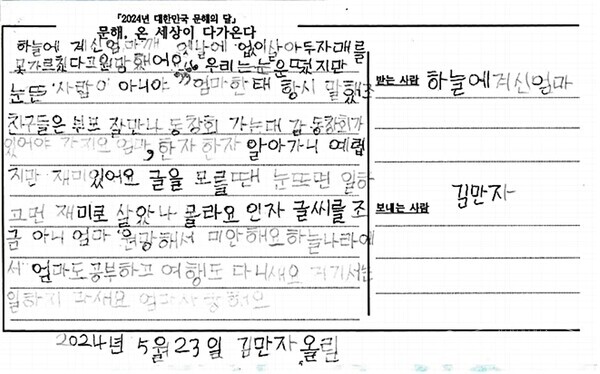 「2024년 대한민국 문해의 달」
문해, 온 세상이 다가온다
하늘에 계신엄마께 옛날에 없이살아두자매를
못가르쳤다고원망했어요“우리는눈은떴지만
눈뜬 사람이 아니야”엄마한태 항시 말했조
친구들은 부모 잘만나 동창회 가는대 감 동창회가
있어야 가지요 엄마, 한자 한자 알아가니 예렵
지만 재미있어요 글을 모를때는 눈뜨면 일하
고먼 재미로 살았나 몰라요 인자 글씨를 조
금 아니 엄마 원망해서 미안해요하늘나라에
서 엄마도공부하고 여행도 다니새요 거기서는
일하지 마새요 엄마사랑해요
2024년 5월23일 김만자 올림
받는 사람 하늘에계신엄마
보내는 사람 김만자